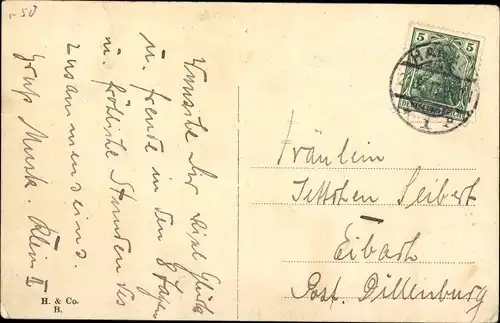 c 50
Wünsche Dir viel Glück
u. Freude in den 8 Tagen
u. fröhliche Stunden des
Zusammenseins.
Gruß Musk. Klein II
H. & Co.
B.
5 5
DEUTSCHES REICH
HA
1
Fräulein
Jettchen Seibert
Eibach
Post Dillenburg